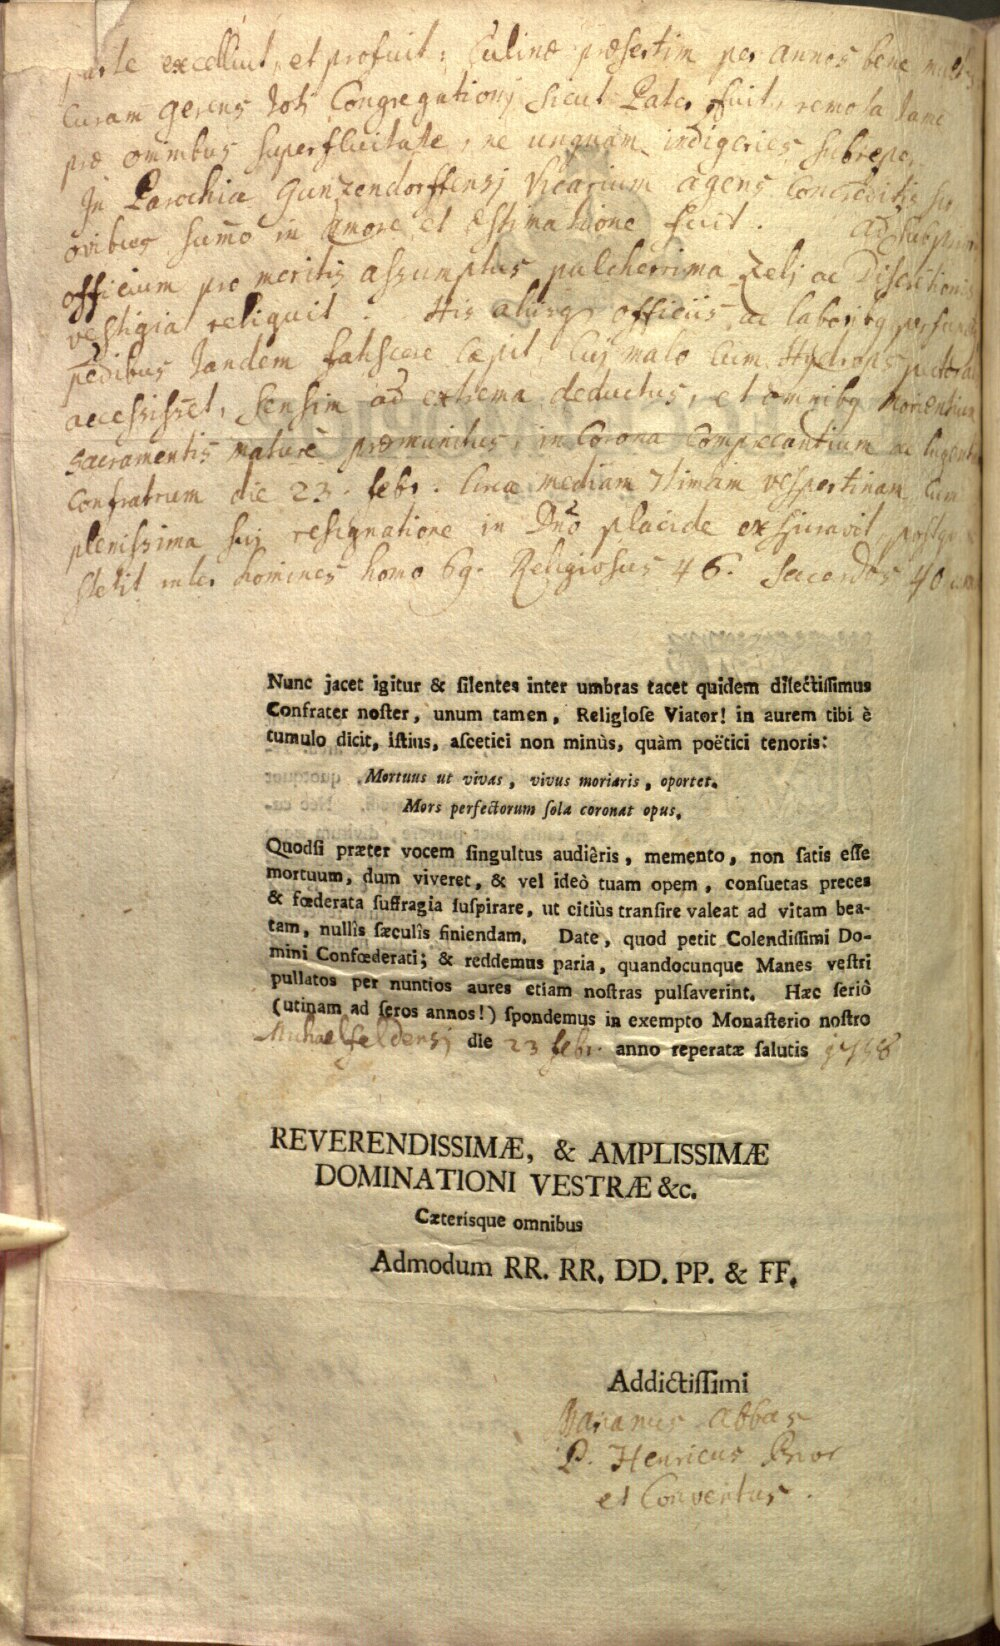 parte excelluit, et profuit: Culinæ præsertim per annos bene
Curam gerens toti Congregationj sicut Pater fuit, remota tame
præ omnibus superfluitate, ne unquam indigeries subrepe
In Parochia Gunzendorffensj Vicarium agens Concreditis si
ovibus sum̄o in amore et æstimatione fuit. ad subprior
officium pro meritis assumptus pulcherrima Zelj ac Discretionis
vestigia reliquit. His aliisq officiis ac laboribq
pedibus tandem fatiscere cæpit Cuj malo cum Hydrops pectora
accessisset, sensim ad extrema deductus, et omnibq morientium
sacramentis maturè præmunitus, in Corona Comprecantium ac lugentiu
Confratrum die 23. febr. Circa mediam 7timam vespertinam cum
plenissima suj resignatione in Dn̄o placide expiravit, postq
stetit inter homines homo 69. Religiosus 46. Sacerdos 40
Nunc jacet igitur & ſilentes inter umbras tacet quidem dilectiſſimus
Confrater noſter, unum tamen, Religioſe Viator! in aurem tibi è
tumulo dicit, iſtius, aſcetici non minùs, quàm poëtici tenoris:
Mortuus ut vivas, vivus moriaris, oportet.
Mors perfectorum ſola coronat opus.
Quodſi præter vocem ſingultus audiêris, memento, non ſatis eſſe
mortuum, dum viveret, & vel ideò tuam opem, conſuetas preces
& fœderata ſuffragia ſuſpirare, ut citiùs tranſire valeat ad vitam bea-
tam, nullîs ſæculîs finiendam. Date, quod petit Colendiſſimi Do-
mini Confœderati; & reddemus paria, quandocunque Manes veſtri
pullatos per nuntios aures etiam noſtras pulſaverint. Hæc ſeriô
(utinam ad ſeros annos!) ſpondemus in exempto Monaſterio noſtro
Michaelfeldensj die 23 febr. anno reperatæ ſalutis 1758
REVERENDISSIMÆ, & AMPLISSIMÆ
DOMINATIONI VESTRÆ &c.
Cæterisque omnibus
Admodum RR. RR. DD. PP. & FF.
Addictiſſimi
Marianus Abbas
P. Henricus Prior
et Conventus.